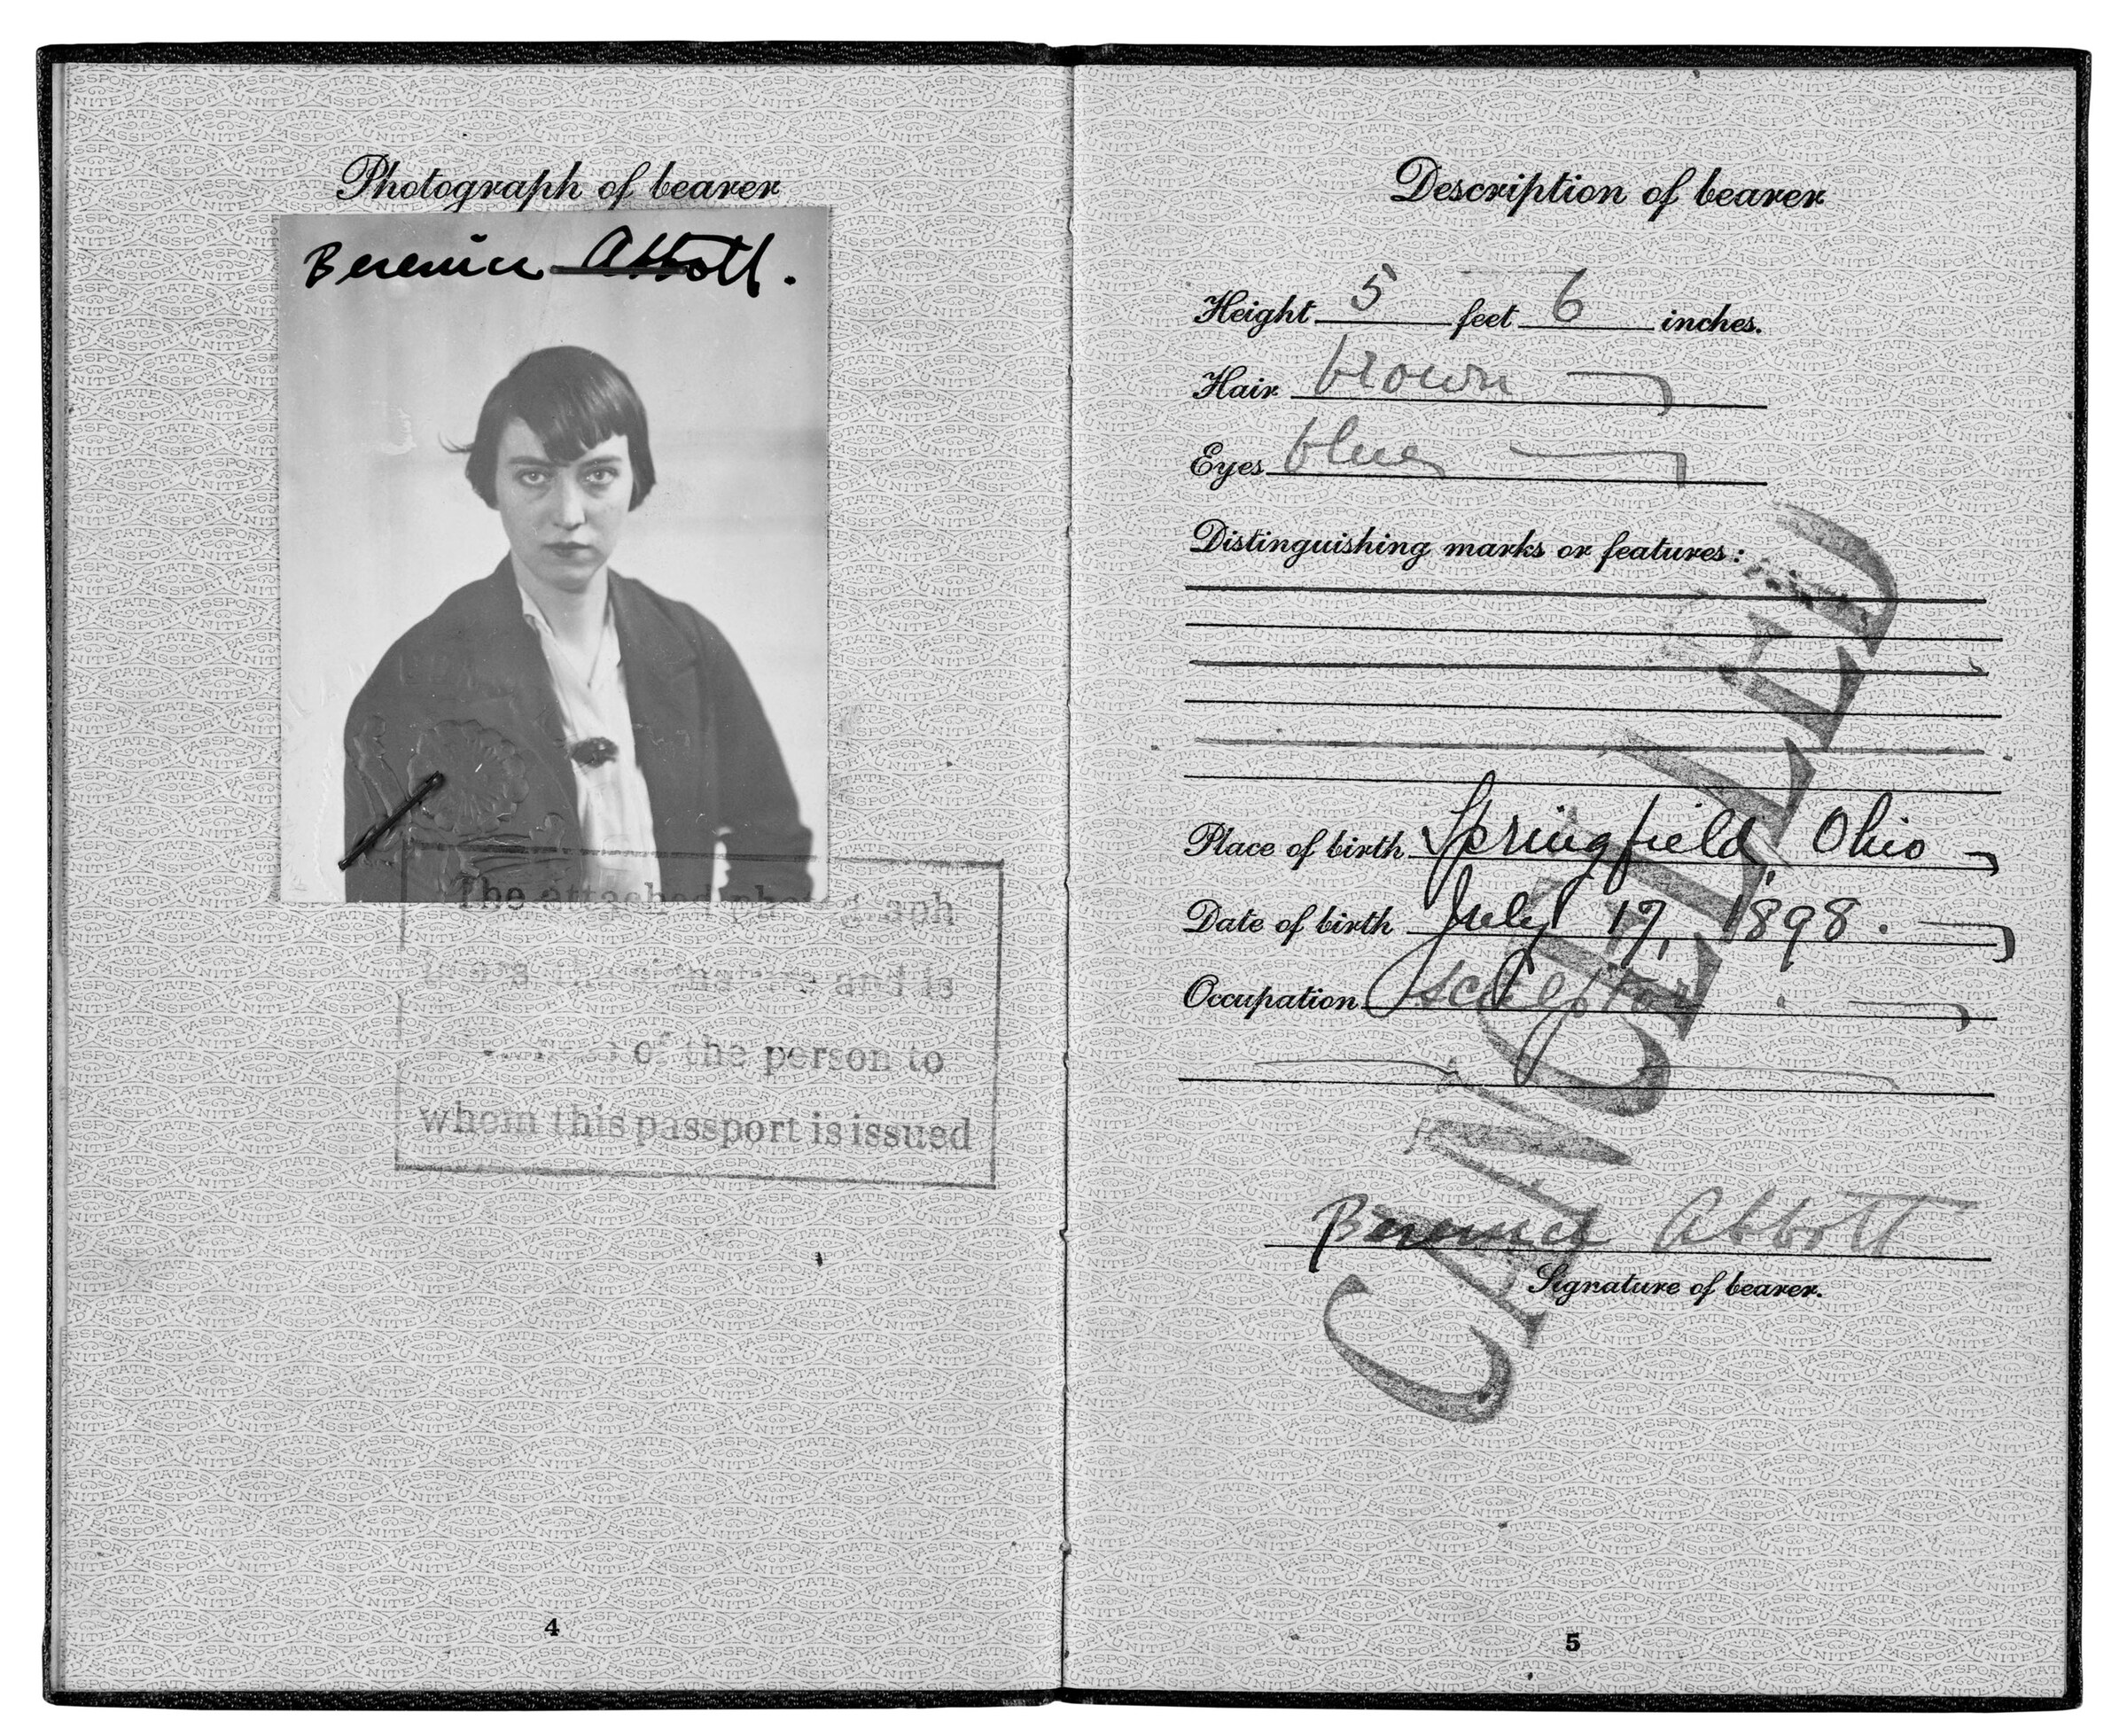 Photograph of bearer
Berenice Abbott.
The attached photograph
and is
of the person to
whom this passport is issued
4
Description of bearer
Height 5 feet 6 inches.
Hair brown
Eyes blue
Distinguishing marks or features:
Place of birth Springfield, Ohio
Date of birth July 17, 1898.
Occupation Sculptor
CANCELLED
Berenice Abbott
Signature of bearer.
5